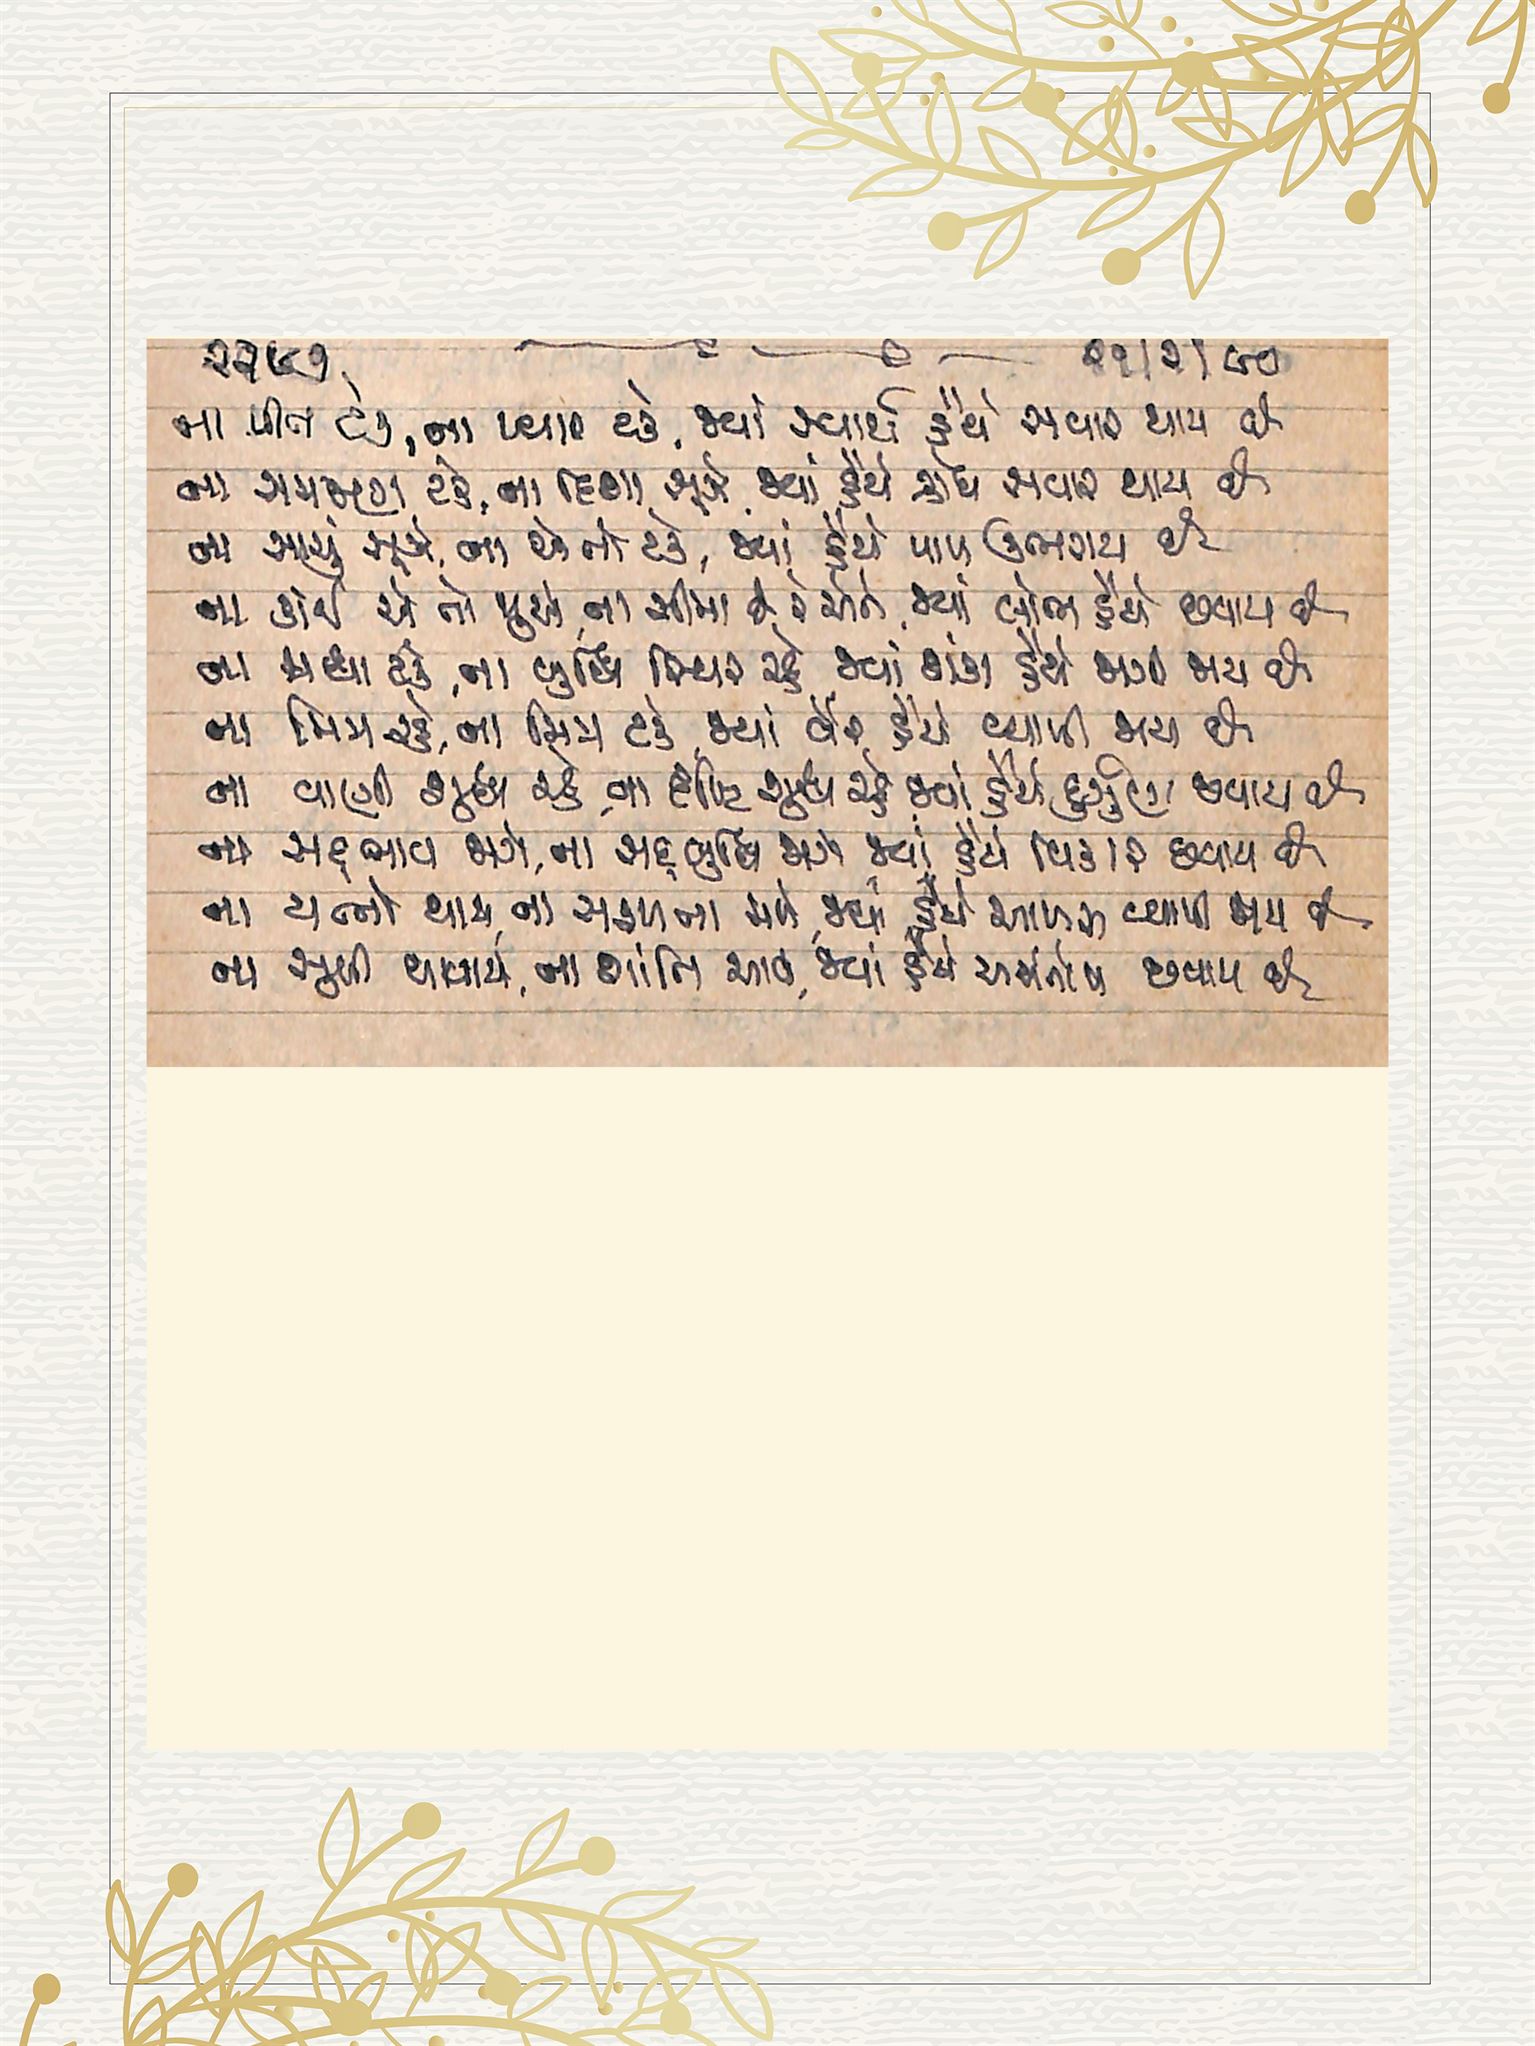 ૨૩૪૭. ૨૧/૨/૯૦
ના પ્રીત ટકે, ના પ્યાર ટકે, જ્યાં સ્વાર્થ હૈયે સવાર થાય છે
ના સમજણ ટકે, ના દિશા સૂઝે, જ્યાં હૈયે ક્રોધ સવાર થાય છે
ના સાચું સૂઝે, ના એ તો ટકે, જ્યાં હૈયે પાપ ઉભરાય છે
ના કોઈ એ તો જુએ, ના સીમા છે રે એને, જ્યાં લોભ હૈયે છવાય છે
ના શ્રદ્ધા ટકે, ના બુદ્ધિ સ્થિર રહે, જ્યાં શંકા હૈયે જાગી જાય છે
ના મિત્ર રહે, ના મિત્ર ટકે, જ્યાં વૈર હૈયે વ્યાપી જાય છે
ના વાણી શુદ્ધ રહે, ના દૃષ્ટિ શુદ્ધ રહે, જ્યાં હૈયે દુર્ગુણ છવાય છે
ના સદ્ભાવ જાગે, ના સદ્બુદ્ધિ જાગે, જ્યાં હૈયે વિકાર છવાય છે
ના યત્નો થાય, ના સફળતા મળે, જ્યાં હૈયે આળસ વ્યાપી જાય છે
ના સુખી થવાયે, ના શાંતિ આવે, જ્યાં હૈયે અસંતોષ છવાય છે